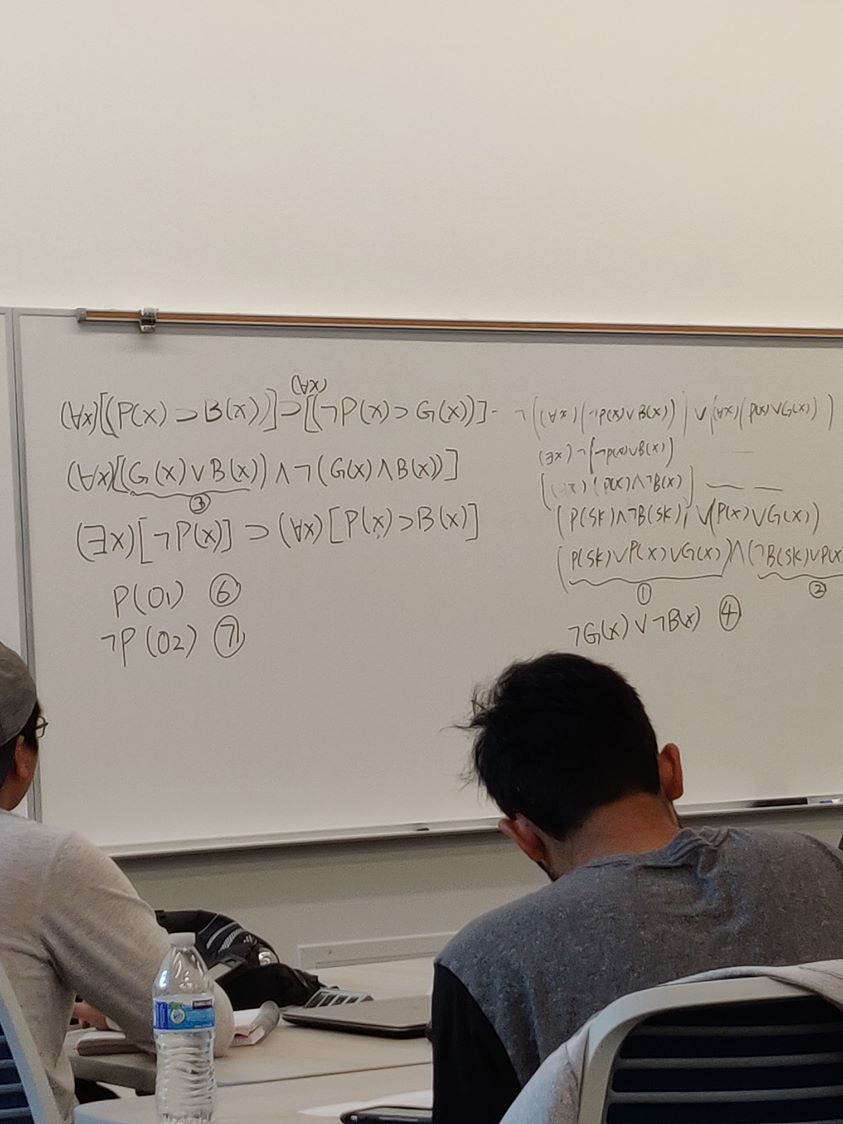 (∀x)
(∀x)[(P(x) ⊃ B(x))] ⊃ [(¬P(x) ⊃ G(x))]
(∀x)[(G(x) ∨ B(x)) ∧ ¬(G(x) ∧ B(x))]
③
(∃x)[¬P(x)] ⊃ (∀x)[P(x) ⊃ B(x)]
P(01) ⑥
¬P(02) ⑦
¬((∀x)(¬P(x) ∨ B(x))) ∨ (∀x)(P(x) ∨ G(x)))
(∃x)¬[¬P(x) ∨ B(x)]
[(∃x)(P(x) ∧ ¬B(x)]
(P(SK) ∧ ¬B(SK)) ∨ (P(x) ∨ G(x))
(P(SK) ∨ P(x) ∨ G(x)) ∧ (¬B(SK) ∨ P(x
① ②
¬G(x) ∨ ¬B(x) ④